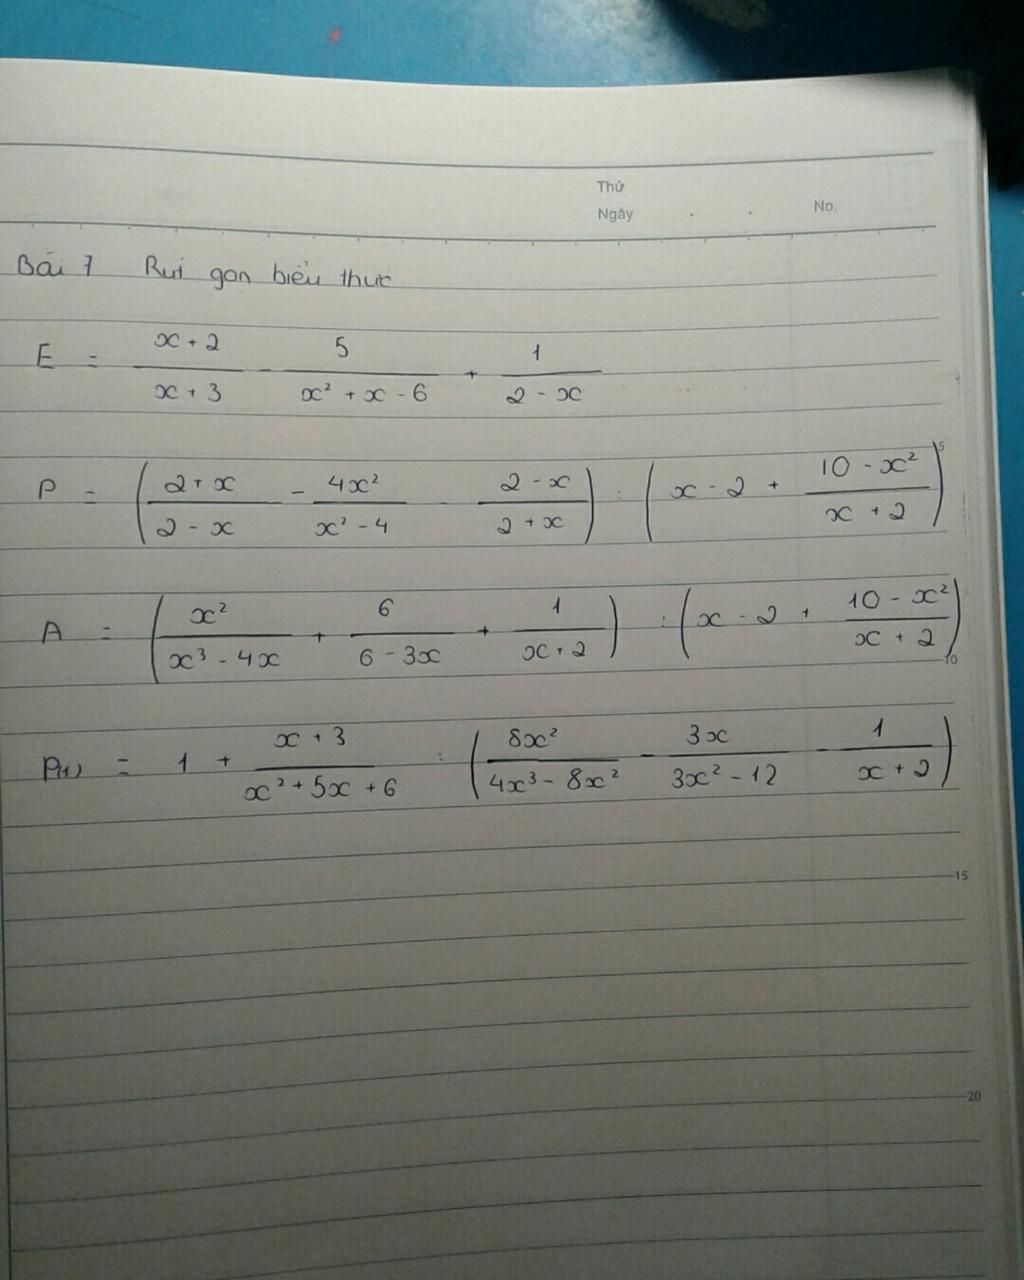 Thứ
Ngày . . No.
Bài 7 Rut gon biểu thưc
E = \frac{x + 2}{x + 3} - \frac{5}{x² + x - 6} + \frac{1}{2 - x}
P = \left(\frac{2 + x}{2 - x} - \frac{4x²}{x² - 4} - \frac{2 - x}{2 + x}\right) : \left(x - 2 + \frac{10 - x²}{x + 2}\right)
5
A = \left(\frac{x²}{x³ - 4x} + \frac{6}{6 - 3x} + \frac{1}{x + 2}\right) : \left(x - 2 + \frac{10 - x²}{x + 2}\right)
10
P(1) = 1 + \frac{x + 3}{x² + 5x + 6} : \left(\frac{8x²}{4x³ - 8x²} - \frac{3x}{3x² - 12} - \frac{1}{x + 2}\right)
15
20